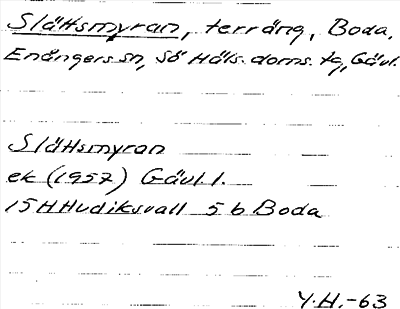 Slättsmyran, terräng, Boda,
Enångers sn, Sö Häls. doms. tg, Gävl.
Slättsmyran
ek (1957) Gävl. l.
15H Hudiksvall 5 b Boda
Y.H.-63